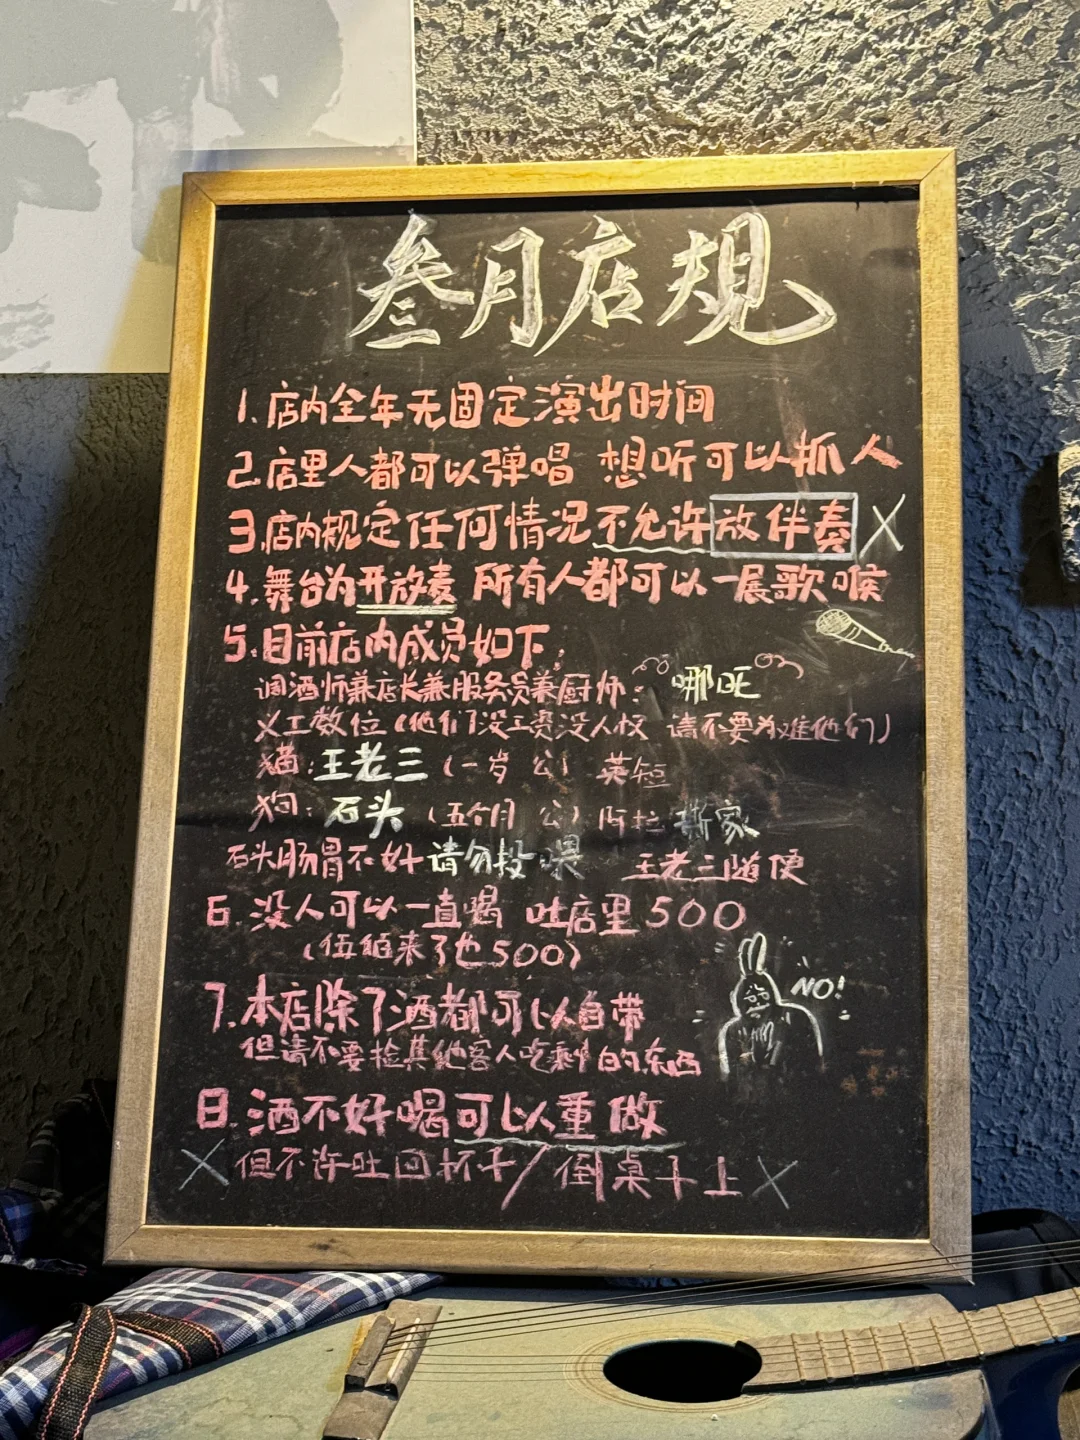 叁月店规
1.店内全年无固定演出时间
2.店里人都可以弹唱 想听可以抓人
3.店内规定任何情况不允许放伴奏 X
4.舞台为开放麦 所有人都可以一展歌喉
5.目前店内成员如下:
调酒师兼店长兼服务员兼厨师:哪吒
义工数位(他们没工资没人权 请不要为难他们)
猫:王老三(一岁 公)英短
狗:石头(五个月 公)阿拉撕家
石头肠胃不好 请勿投喂 王老三随便
6.没人可以一直喝 吐店里500
(伍维来了也500)
NO!
7.本店除了酒都可以自带
但请不要捡其他客人吃剩的东西
8.酒不好喝可以重做
X但不许吐回杯子/倒桌子上X